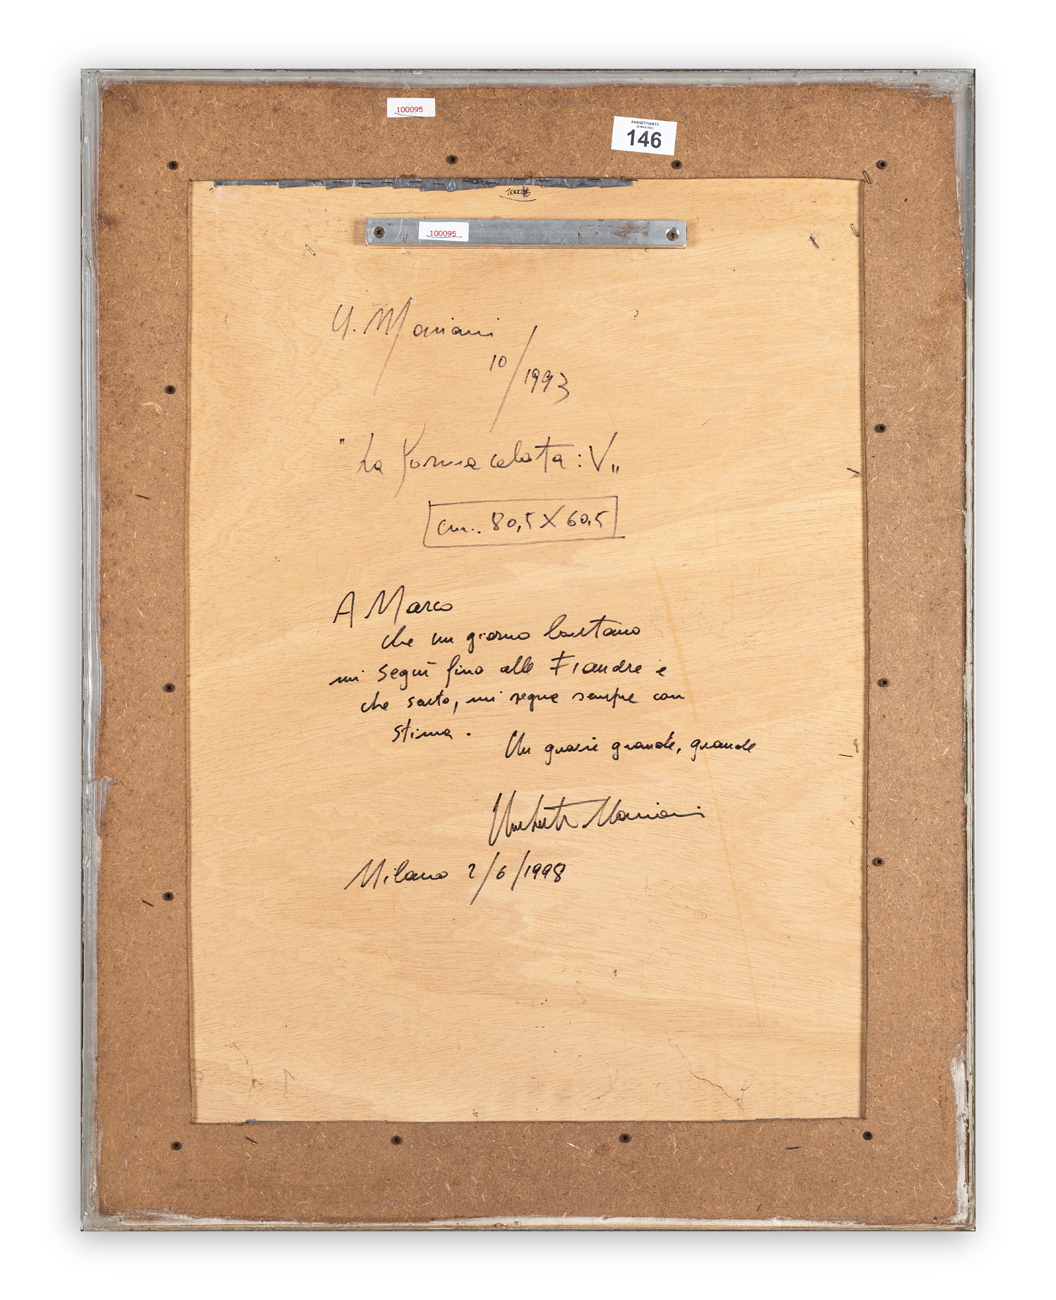 100095
FARSETTIARTE
146
100095
100095
U. Mariani
10/1993
"La forma celata: V„
cm. 80,5 X 60,5
A Marco
che un giorno lontano
mi seguì fino alle Fiandre e
che so, mi segue sempre con
stima.
Un grazie grande, grande
Umberto Mariani
Milano 2/6/1998